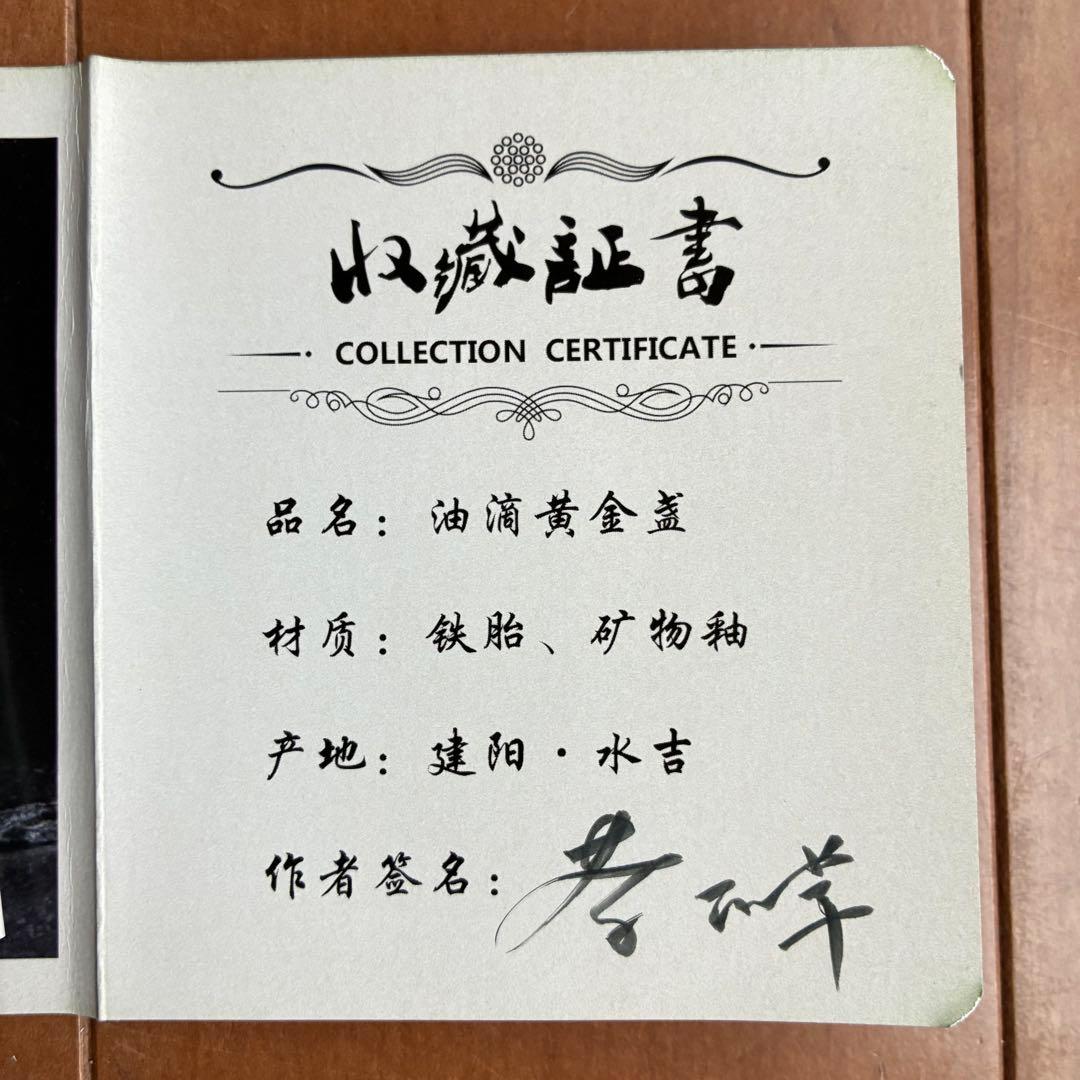 收藏証書
COLLECTION CERTIFICATE
品名：油滴黄金盏
材质：铁胎、矿物釉
产地：建阳·水吉
作者签名：